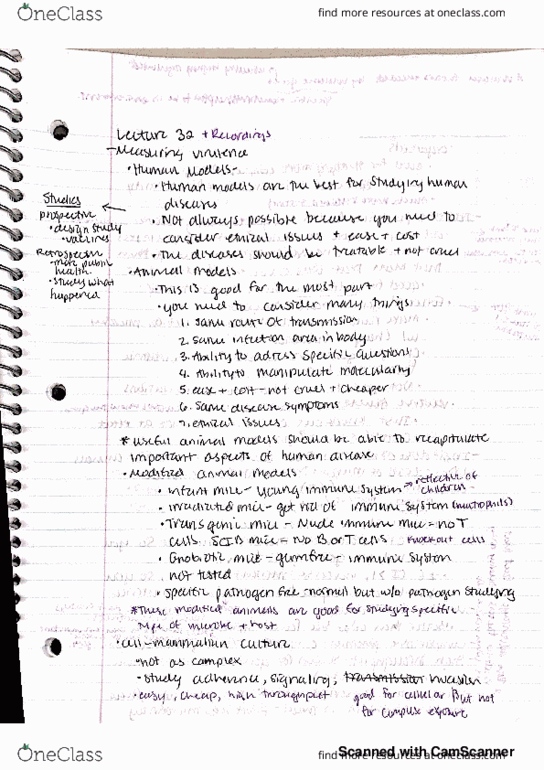 OneClass
find more resources at oneclass.com
Lecture 32 + Recordings
- Measuring virulence
• Human Models -
• Human models are the best for studying human
diseases
• Not always possible because you need to
consider ethical issues + ease + cost
• The diseases should be treatable + not cruel
Studies
prospective
• design study
vaccines
Retrospective
• more public
health
• study what
happened
• Animal models
• This is good for the most part
• you need to consider many things
1. Same route of transmission
2. Same infection area in body
3. Ability to adress specific questions
4. Ability to manipulate molecularly
5. ease + cost - not cruel + cheaper
6. Same disease symptoms
7. ethical issues
* useful animal models should be able to recapitulate
important aspects of human disease
• Modified animal models
• infant mice - young immune system → reflective of
children
• irradiated mice - get rid of immune system (neutrophils)
• Transgenic mice - Nude immune mice = no T
cells. SCID mice = No B or T cells knockout cells
• Gnobiotic mice - germfree - immune system
not tested
• specific pathogen free - normal but w/o pathogen studying
* These modified animals are good for studying specific
type of microbe + host
• cell - mammalian culture
• not as complex
• study adherence, signaling, transmission invasion
• easy, cheap, high throughput good for cellular but not
for complex exposure
Scanned with CamScanner
OneClass
find more resources at oneclass.com